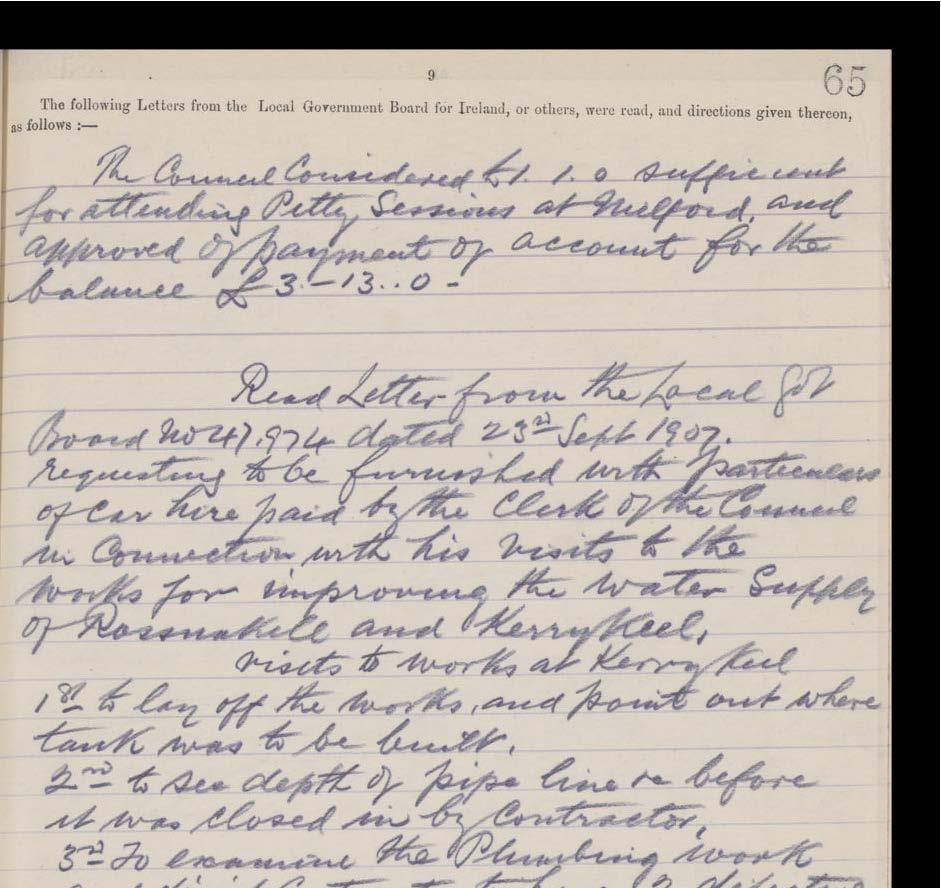 9
65
The following Letters from the Local Government Board for Ireland, or others, were read, and directions given thereon,
as follows :—
The Council Considered £1. 1. 0 sufficient
for attending Petty Sessions at Milford, and
approved of payment of account for the
balance £3-13..0-
Read Letter from the Local Govt
Board No 47,974 dated 23rd Sept 1907.
requesting to be furnished with particulars
of car hire paid by the Clerk of the Council
in Connection with his visits to the
works for improving the water Supply
of Rossnakill and Kerrykeel,
visits to works at Kerrykeel
1st to lay off the works, and point out where
tank was to be built.
2nd to see depth of pipe line &c before
it was closed in by Contractor,
3rd To examine the Plumbing work